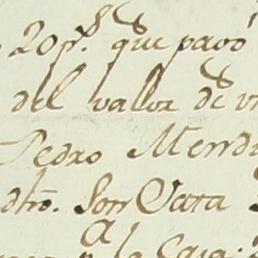 20 p.s que pagó
del vallor de v
Pedro Mendi
dho. Son Para
a la Caja